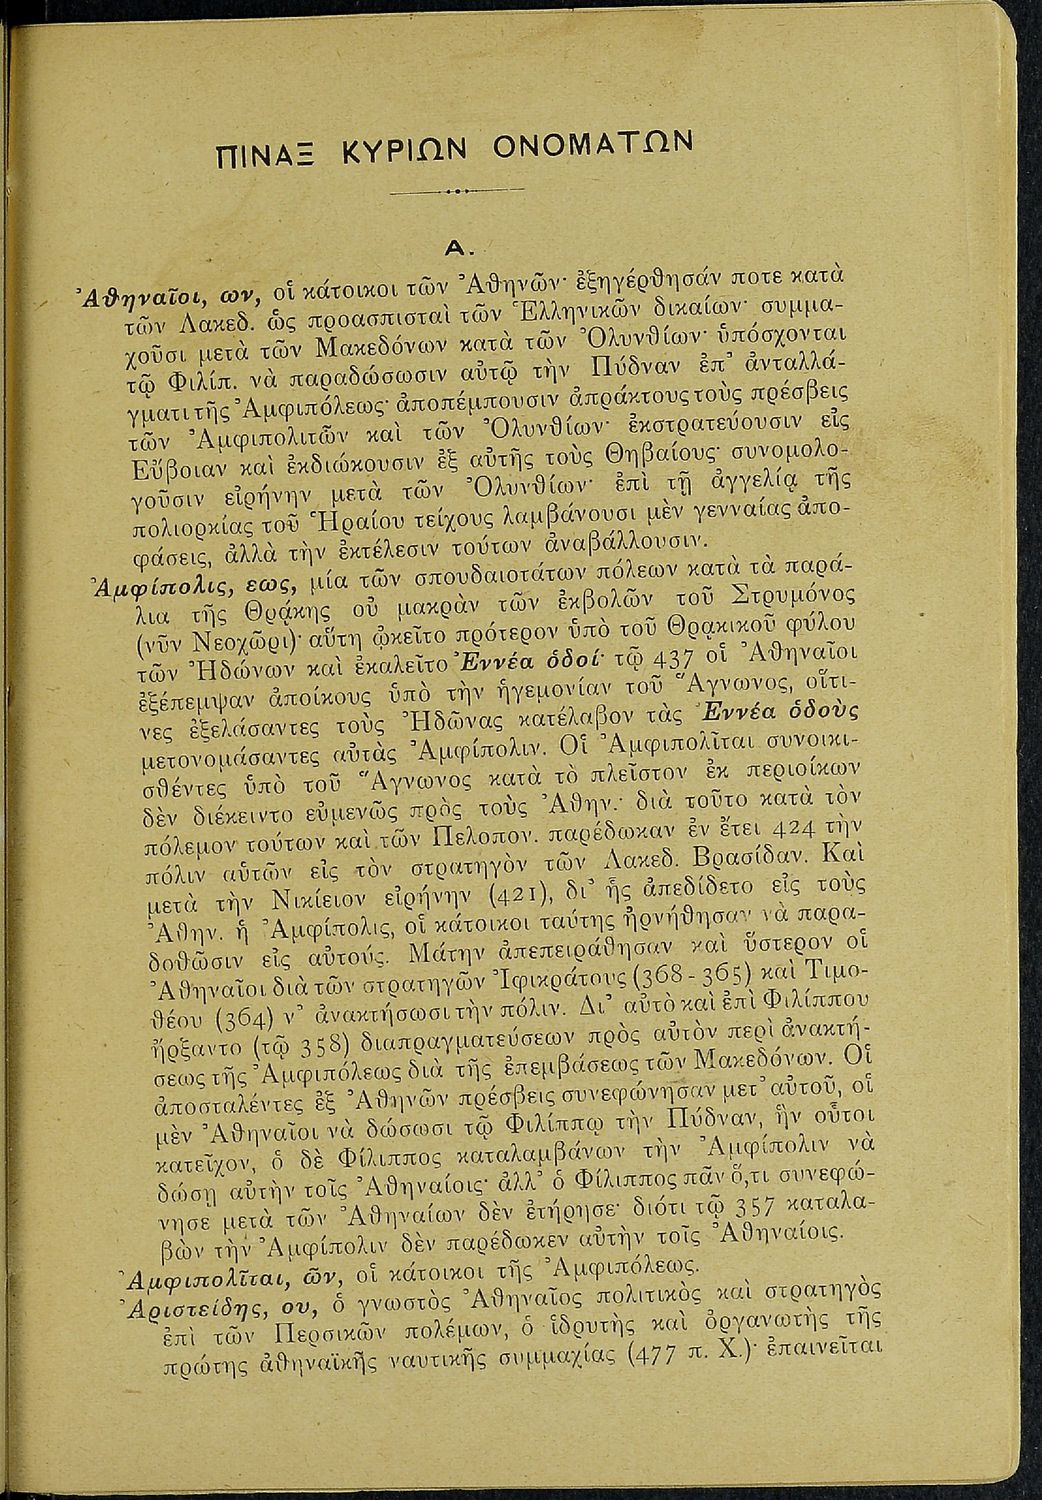 ΠΙΝΑΞ ΚΥΡΙΩΝ ΟΝΟΜΑΤΩΝ
Α.
Ἀθηναῖοι, ων, οἱ κάτοικοι τῶν Ἀθηνῶν· ἐξηγέρθησάν ποτε κατὰ
τῶν Λακεδ. ὡς προασπισταὶ τῶν Ἑλληνικῶν δικαίων· συμμα-
χοῦσι μετὰ τῶν Μακεδόνων κατὰ τῶν Ὀλυνθίων· ὑπόσχονται
τῷ Φιλίπ. νὰ παραδώσωσιν αὐτῷ τὴν Πύδναν ἐπ’ ἀνταλλά-
γματι τῆς Ἀμφιπόλεως· ἀποπέμπουσιν ἀπράκτους τοὺς πρέσβεις
τῶν Ἀμφιπολιτῶν καὶ τῶν Ὀλυνθίων· ἐκστρατεύουσιν εἰς
Εὔβοιαν καὶ ἐκδιώκουσιν ἐξ αὐτῆς τοὺς Θηβαίους· συνομολο-
γοῦσιν εἰρήνην μετὰ τῶν Ὀλυνθίων· ἐπὶ τῇ ἀγγελίᾳ τῆς
πολιορκίας τοῦ Ἡραίου τείχους λαμβάνουσι μὲν γενναίας ἀπο-
φάσεις, ἀλλὰ τὴν ἐκτέλεσιν τούτων ἀναβάλλουσιν.
Ἀμφίπολις, εως, μία τῶν σπουδαιοτάτων πόλεων κατὰ τὰ παρά-
λια τῆς Θρᾴκης οὐ μακρὰν τῶν ἐκβολῶν τοῦ Στρυμόνος
(νῦν Νεοχῶρι)· αὕτη ᾠκεῖτο πρότερον ὑπὸ τοῦ Θρᾳκικοῦ φύλου
τῶν Ἠδώνων καὶ ἐκαλεῖτο Ἐννέα ὁδοί· τῷ 437 οἱ Ἀθηναῖοι
ἐξέπεμψαν ἀποίκους ὑπὸ τὴν ἡγεμονίαν τοῦ Ἅγνωνος, οἵτι-
νες ἐξελάσαντες τοὺς Ἠδῶνας κατέλαβον τὰς Ἐννέα ὁδοὺς
μετονομάσαντες αὐτὰς Ἀμφίπολιν. Οἱ Ἀμφιπολῖται συνοικι-
σθέντες ὑπὸ τοῦ Ἅγνωνος κατὰ τὸ πλεῖστον ἐκ περιοίκων
δὲν διέκειντο εὐμενῶς πρὸς τοὺς Ἀθην.· διὰ τοῦτο κατὰ τὸν
πόλεμον τούτων καὶ τῶν Πελοπον. παρέδωκαν ἐν ἔτει 424 τὴν
πόλιν αὑτῶν εἰς τὸν στρατηγὸν τῶν Λακεδ. Βρασίδαν. Καὶ
μετὰ τὴν Νικίειον εἰρήνην (421), δι’ ἧς ἀπεδίδετο εἰς τοὺς
Ἀθην. ἡ Ἀμφίπολις, οἱ κάτοικοι ταύτης ἠρνήθησαν νὰ παρα-
δοθῶσιν εἰς αὐτούς. Μάτην ἀπεπειράθησαν καὶ ὕστερον οἱ
Ἀθηναῖοι διὰ τῶν στρατηγῶν Ἰφικράτους (368 - 365) καὶ Τιμο-
θέου (364) ν’ ἀνακτήσωσι τὴν πόλιν. Δι’ αὐτὸ καὶ ἐπὶ Φιλίππου
ἤρξαντο (τῷ 358) διαπραγματεύσεων πρὸς αὐτὸν περὶ ἀνακτή-
σεως τῆς Ἀμφιπόλεως διὰ τῆς ἐπεμβάσεως τῶν Μακεδόνων. Οἱ
ἀποσταλέντες ἐξ Ἀθηνῶν πρέσβεις συνεφώνησαν μετ’ αὐτοῦ, οἱ
μὲν Ἀθηναῖοι νὰ δώσωσι τῷ Φιλίππῳ τὴν Πύδναν, ἣν οὗτοι
κατεῖχον, ὁ δὲ Φίλιππος καταλαμβάνων τὴν Ἀμφίπολιν νὰ
δώσῃ αὐτὴν τοῖς Ἀθηναίοις· ἀλλ’ ὁ Φίλιππος πᾶν ὅ,τι συνεφώ-
νησε μετὰ τῶν Ἀθηναίων δὲν ἐτήρησε· διότι τῷ 357 καταλα-
βὼν τὴν Ἀμφίπολιν δὲν παρέδωκεν αὐτὴν τοῖς Ἀθηναίοις.
Ἀμφιπολῖται, ῶν, οἱ κάτοικοι τῆς Ἀμφιπόλεως.
Ἀριστείδης, ου, ὁ γνωστὸς Ἀθηναῖος πολιτικὸς καὶ στρατηγὸς
ἐπὶ τῶν Περσικῶν πολέμων, ὁ ἱδρυτὴς καὶ ὀργανωτὴς τῆς
πρώτης ἀθηναϊκῆς ναυτικῆς συμμαχίας (477 π. Χ.)· ἐπαινεῖται